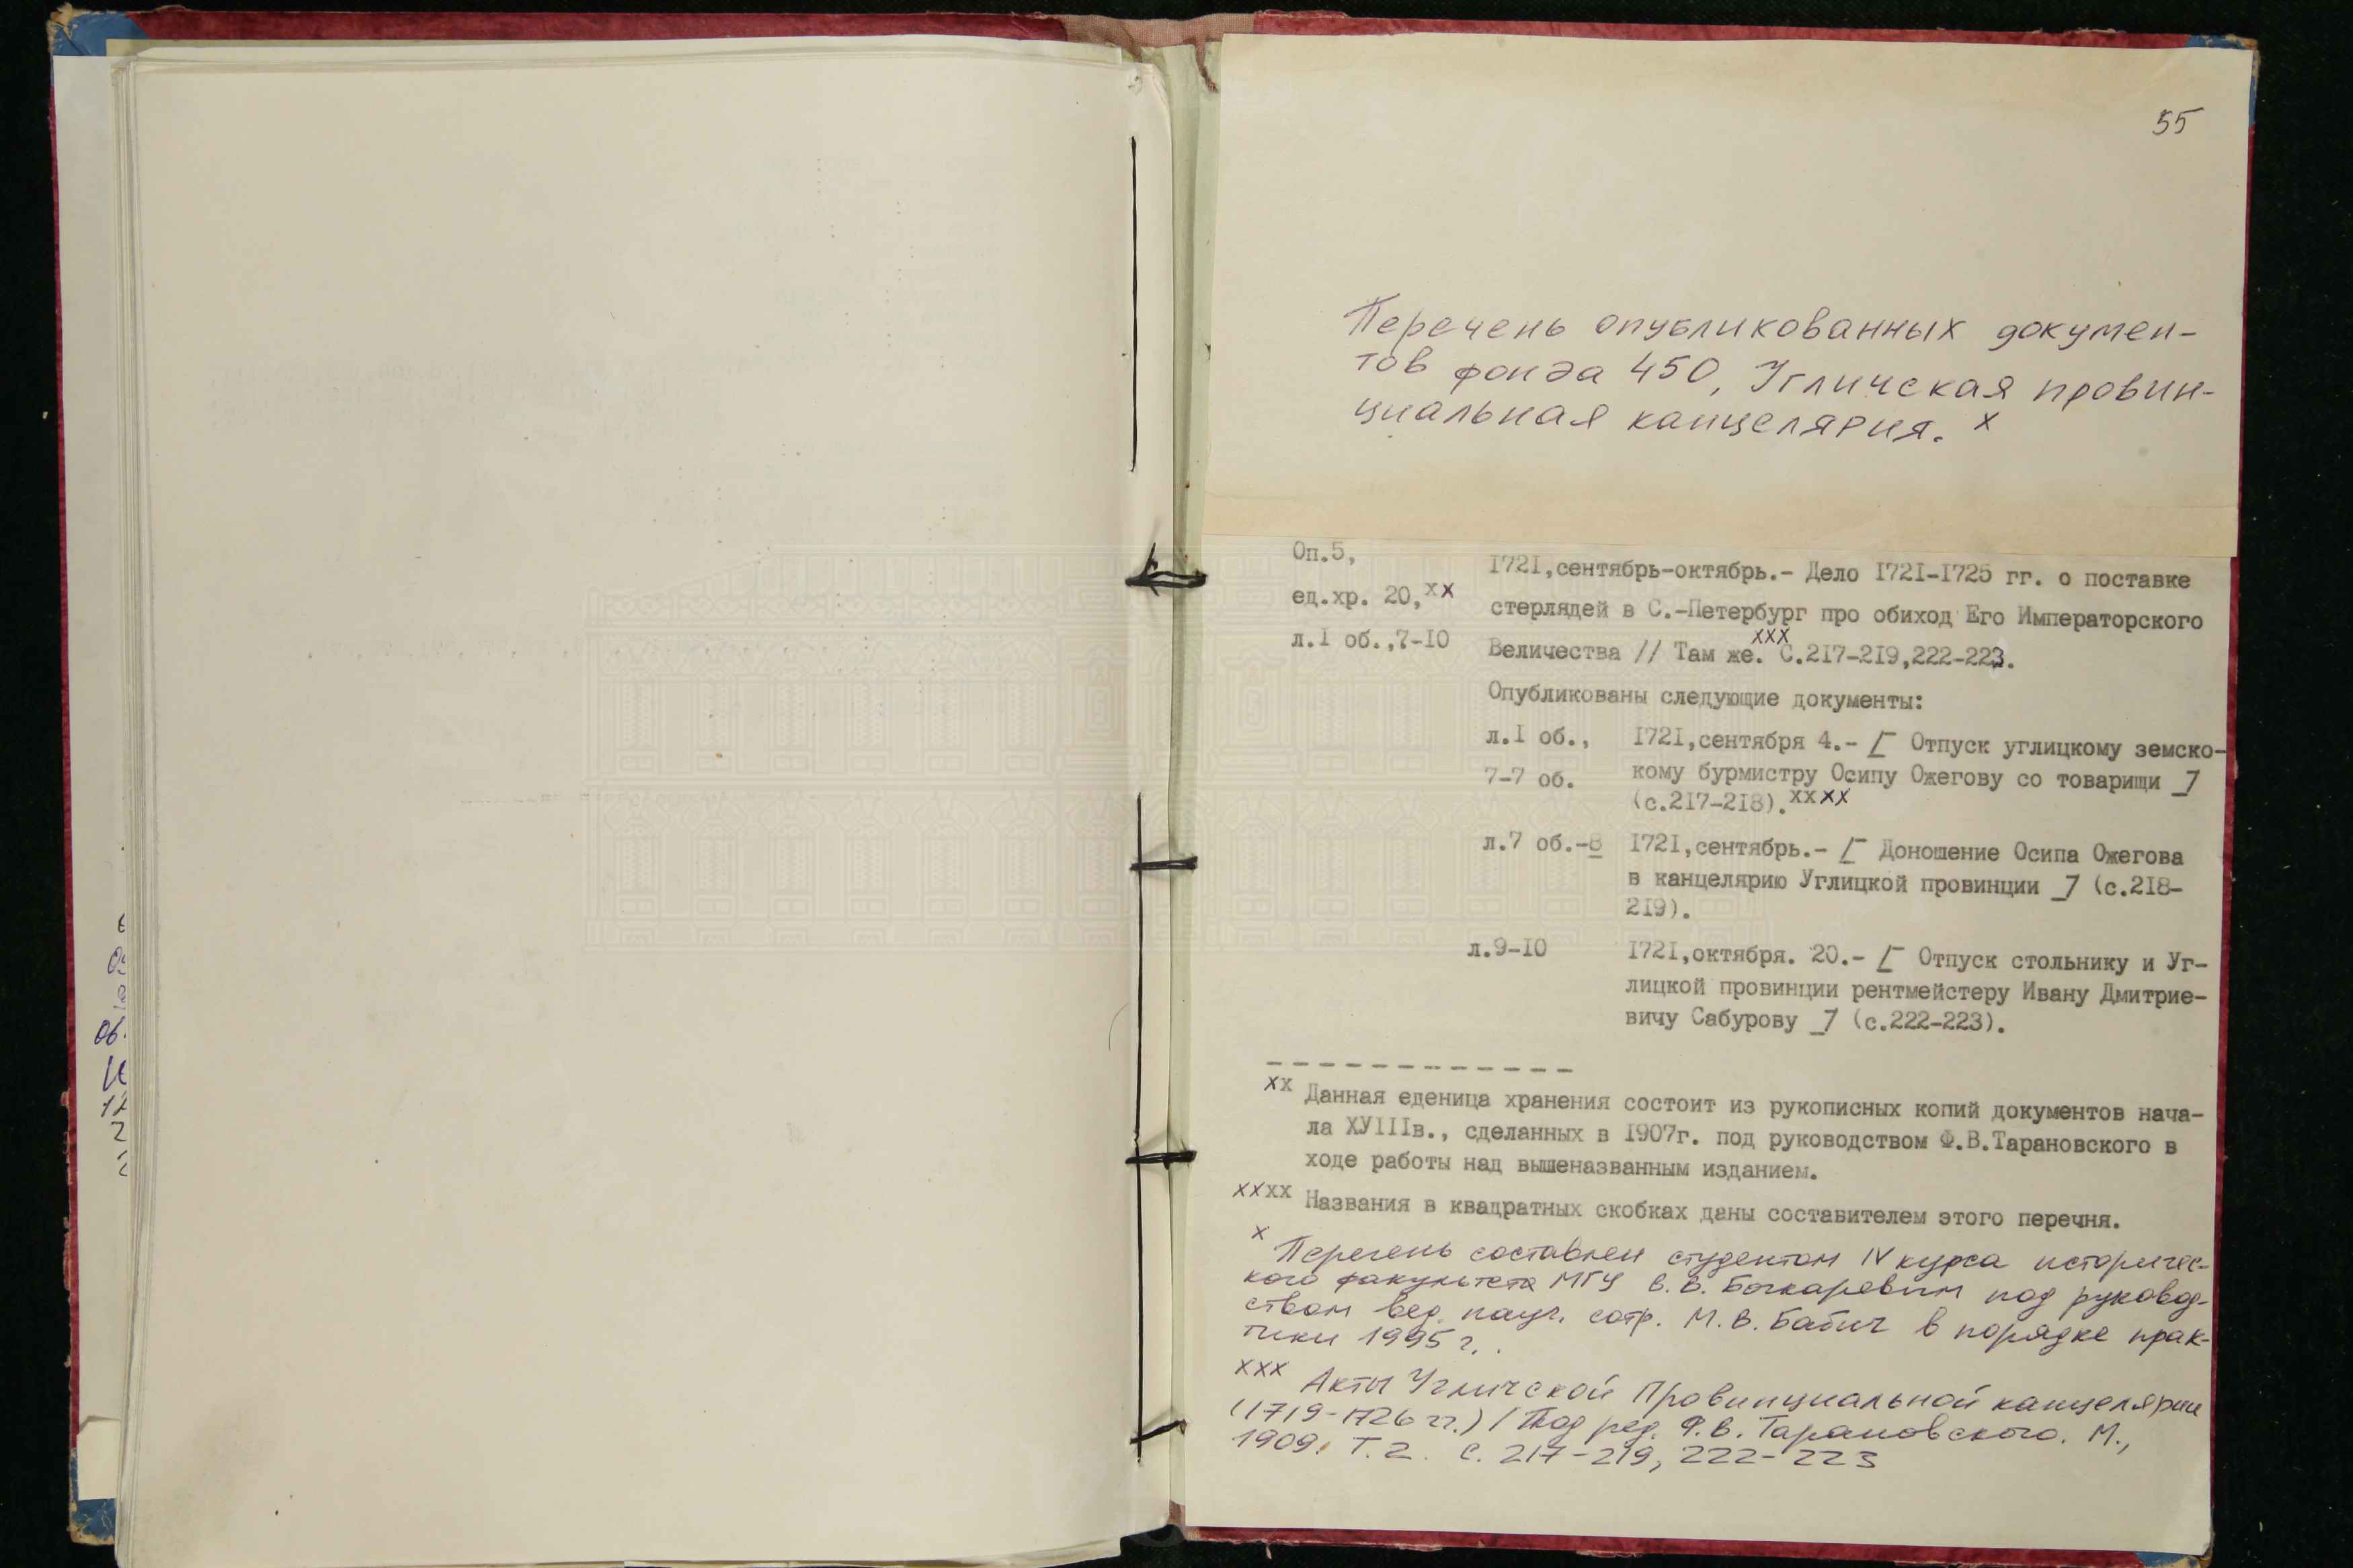 55
Перечень опубликованных докумен-
тов фонда 450, Угличская провин-
циальная канцелярия. х
Оп.5,
ед.хр. 20,хх
л.I об.,7-I0
I72I,сентябрь-октябрь.- Дело I72I-I725 гг. о поставке
стерлядей в С.-Петербург про обиход Его Императорского
Величества // Там же.ххх С.2I7-2I9,222-223.
Опубликованы следующие документы:
л.I об.,
7-7 об.
I72I,сентября 4.- [ Отпуск углицкому земско-
кому бурмистру Осипу Ожегову со товарищи ]
(с.2I7-2I8).хххх
л.7 об.-8
I72I,сентябрь.- [ Доношение Осипа Ожегова
в канцелярию Углицкой провинции ] (с.2I8-
2I9).
л.9-I0
I72I,октября. 20.- [ Отпуск стольнику и Уг-
лицкой провинции рентмейстеру Ивану Дмитрие-
вичу Сабурову ] (с.222-223).
хх Данная еденица хранения состоит из рукописных копий документов нача-
ла ХУIIIв., сделанных в I907г. под руководством Ф.В.Тарановского в
ходе работы над вышеназванным изданием.
хххх Названия в квадратных скобках даны составителем этого перечня.
х Перечень составлен студентом IV курса историчес-
кого факультета МГУ В.В. Бочкаревым под руковод-
ством вед. науч. сотр. М.В. Бабич в порядке прак-
тики 1995 г.
ххх Акты Угличской Провинциальной канцелярии
(1719-1726 гг.) / Под ред. Ф.В. Тарановского. М.,
1909. Т.2. С. 217-219, 222-223